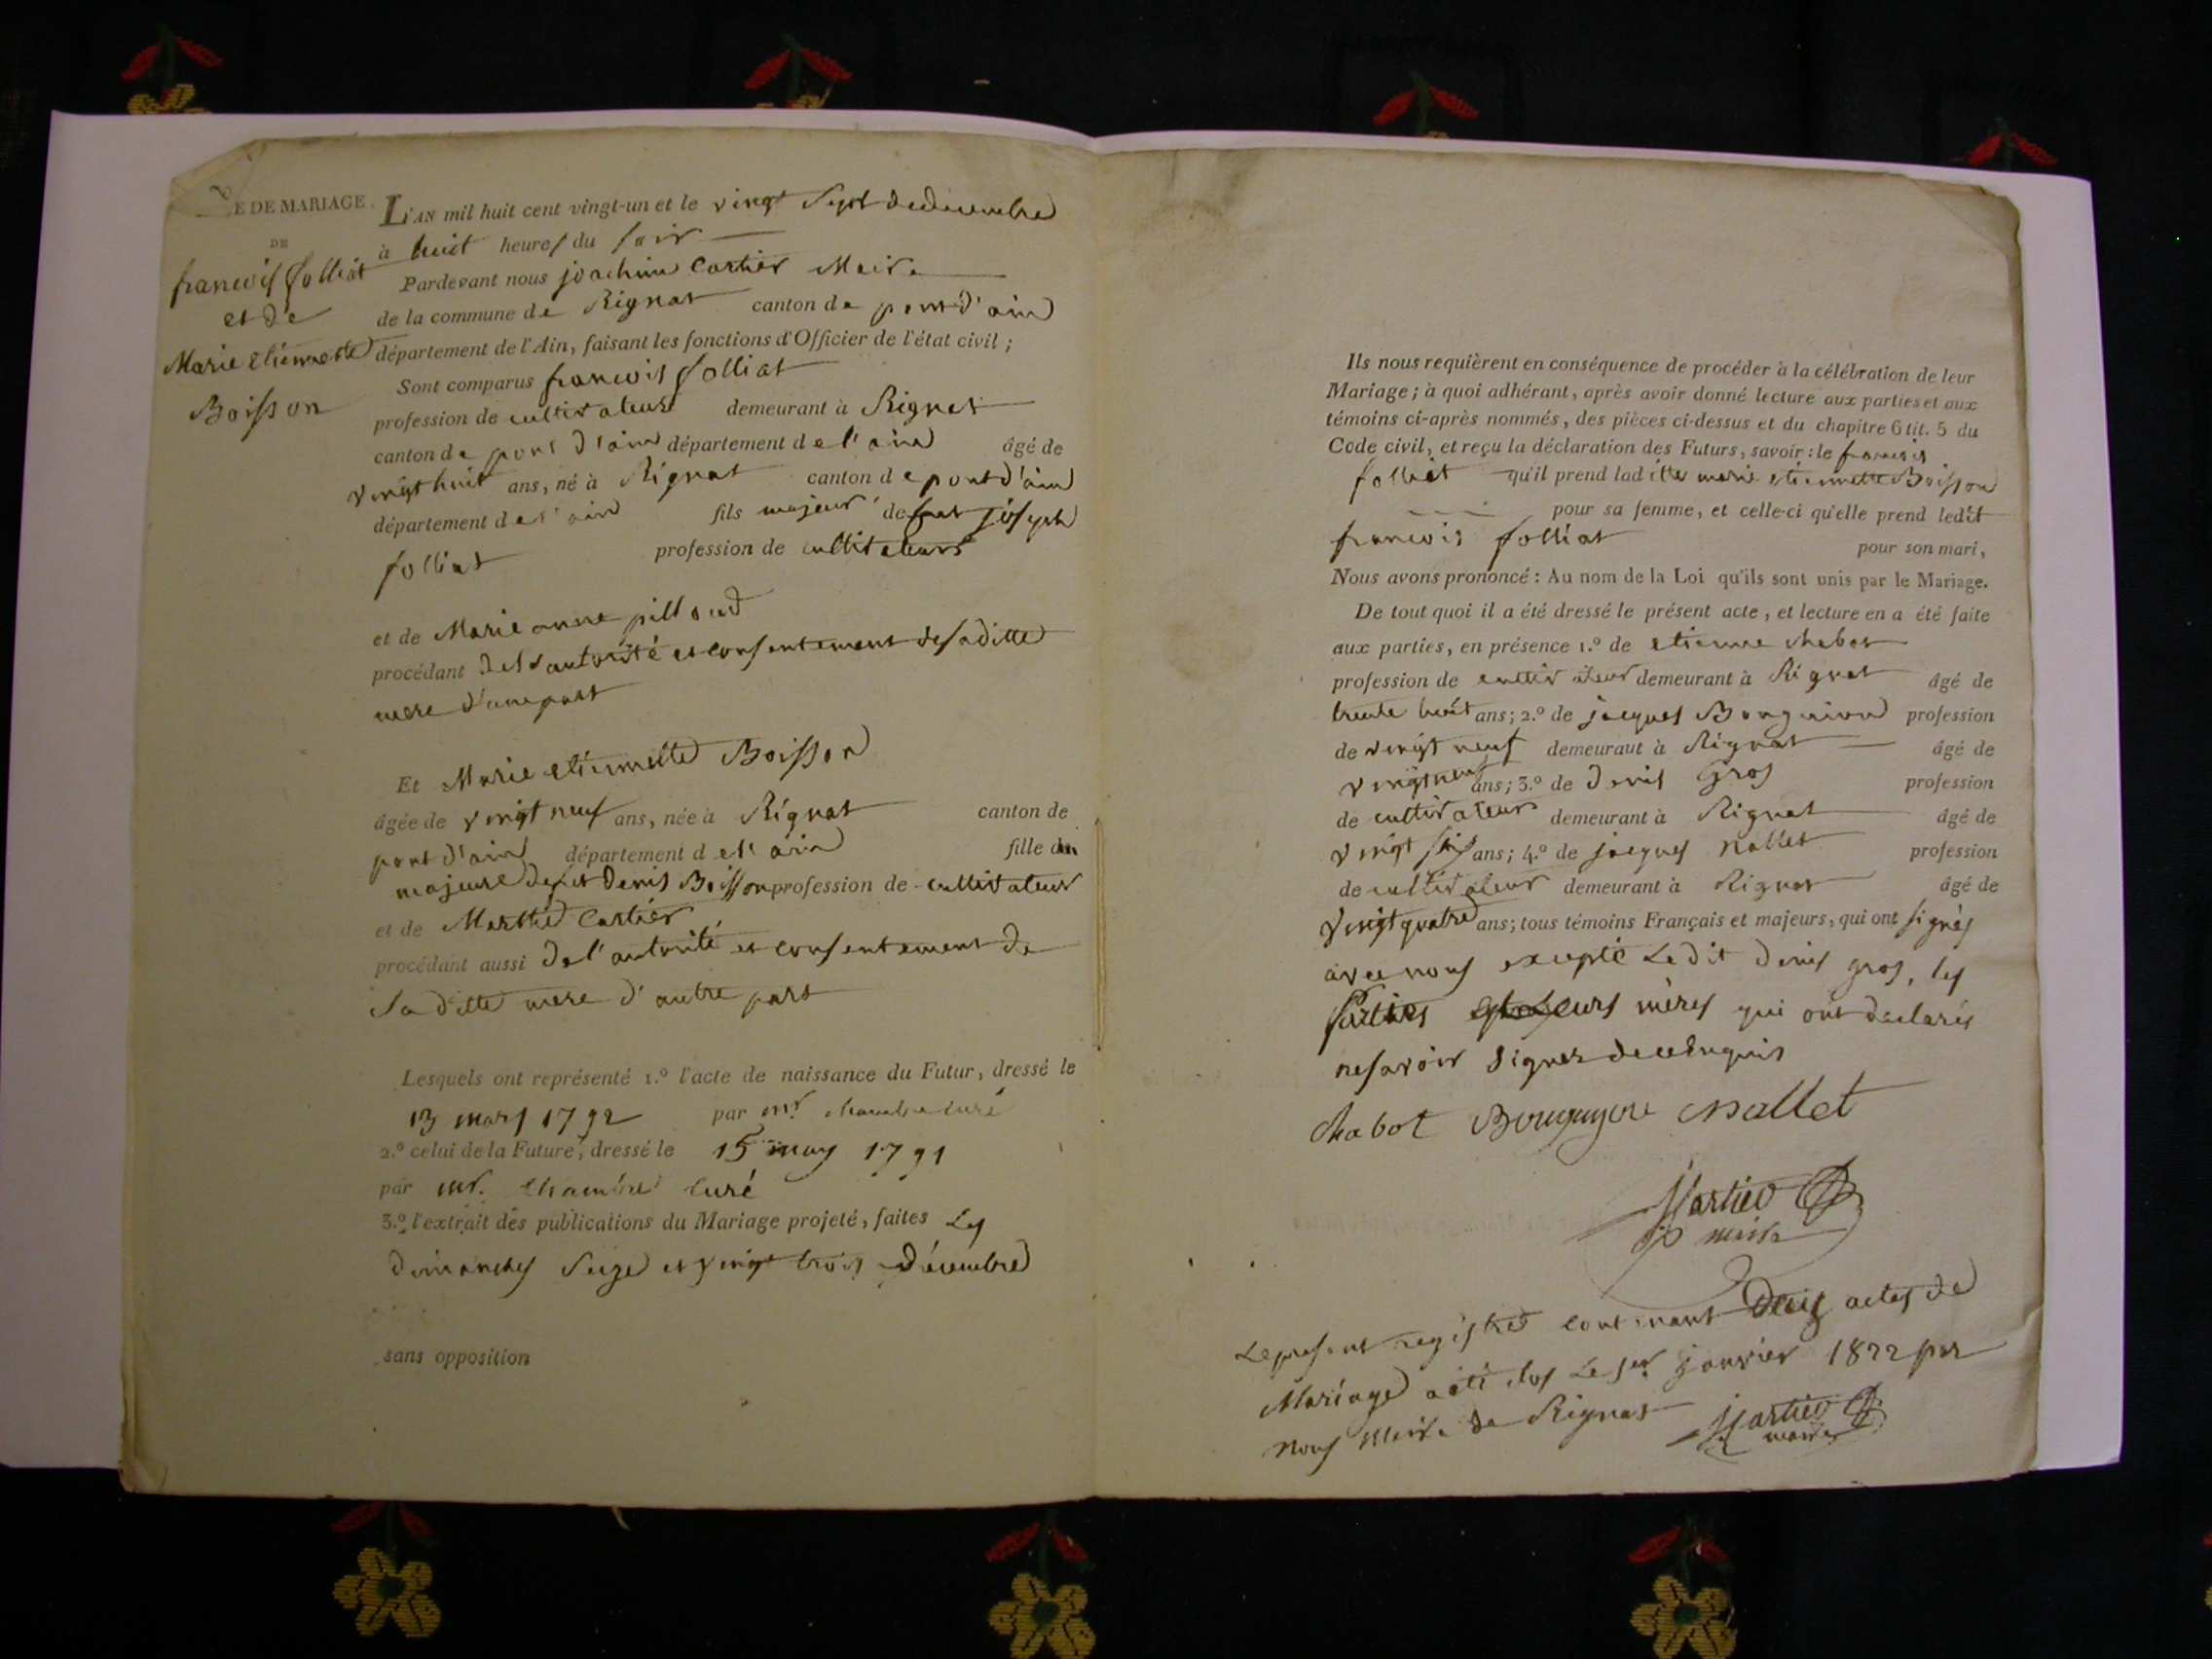 E DE MARIAGE.
DE
francois folliat
et de
Marie etiennette
Boisson
L'AN mil huit cent vingt-un et le vingt Sept de decembre
à huit heures du soir
Pardevant nous joachim Cartier Maire
de la commune de Rignat canton de pont d'ain
département de l'Ain, faisant les fonctions d'Officier de l'état civil ;
Sont comparus francois folliat
profession de cultivateur demeurant à Rignat
canton de pont d'ain département de l'ain âgé de
vingt huit ans, né à Rignat canton de pont d'ain
département de l'ain fils majeur de joseph
folliat profession de cultivateur
et de Marie anne pilloud
procédant de l'autorité et consentement de saditte
mere d'une part
Et Marie etiennette Boisson
âgée de vingt neuf ans, née à Rignat canton de
pont d'ain département de l'ain fille
majeure de Denis Boisson profession de cultivateur
et de Marthe Cartier
procédant aussi De l'autorité et consentement de
Sa ditte mere d'autre part
Lesquels ont représenté 1.º l'acte de naissance du Futur, dressé le
13 mars 1792 par mr. chambre curé
2.º celui de la Future, dressé le 15 may 1791
par mr. Chambre curé
3.º l'extrait des publications du Mariage projeté, faites Les
dimanches Seize et vingt trois décembre
sans opposition
Ils nous requièrent en conséquence de procéder à la célébration de leur
Mariage ; à quoi adhérant, après avoir donné lecture aux parties et aux
témoins ci-après nommés, des pièces ci-dessus et du chapitre 6 tit. 5 du
Code civil, et reçu la déclaration des Futurs, savoir : le francois
folliat qu'il prend laditte marie etiennette Boisson
pour sa femme, et celle-ci qu'elle prend ledit
francois folliat pour son mari,
Nous avons prononcé : Au nom de la Loi qu'ils sont unis par le Mariage.
De tout quoi il a été dressé le présent acte, et lecture en a été faite
aux parties, en présence 1.º de etienne chabot
profession de cultivateur demeurant à Rignat âgé de
trente huit ans ; 2.º de jacques profession
de vingt neuf demeurant à Rignat âgé de
vingt neuf ans ; 3.º de Denis Gros profession
de cultivateur demeurant à Rignat âgé de
vingt six ans ; 4.º de jacques Nallet profession
de cultivateur demeurant à Rignat âgé de
vingt quatre ans ; tous témoins Français et majeurs, qui ont signés
avec nous excepté Le dit denis gros, les
parties leurs mères qui ont declarés
ne savoir signer de ce enquis
Chabot Nallet
Cartier
maire
Le present registre contenant Deux actes de
Mariage a été clos Le 1er janvier 1822 par
nous Maire de Rignat Cartier
maire